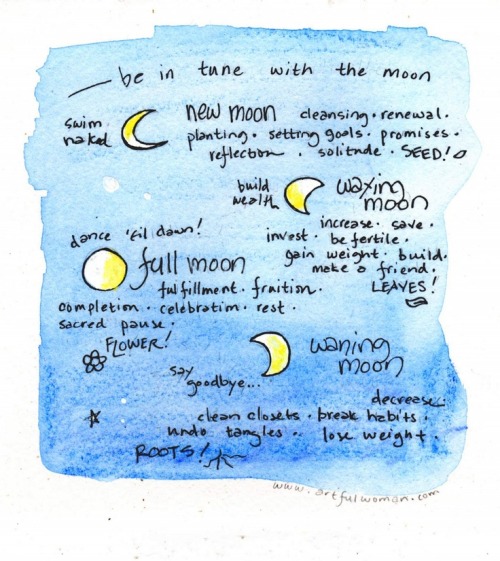 be in tune with the moon
swim naked
new moon
cleansing · renewal ·
planting · setting goals · promises ·
reflection · solitude · SEED!
build wealth
waxing moon
increase · save ·
invest · be fertile ·
gain weight · build ·
make a friend ·
LEAVES!
dance 'til dawn!
full moon
fulfillment · fruition ·
completion · celebration · rest ·
sacred pause ·
FLOWER!
waning moon
say goodbye...
decrease ·
clean closets · break habits ·
undo tangles · lose weight ·
ROOTS!
www.artfulwoman.com